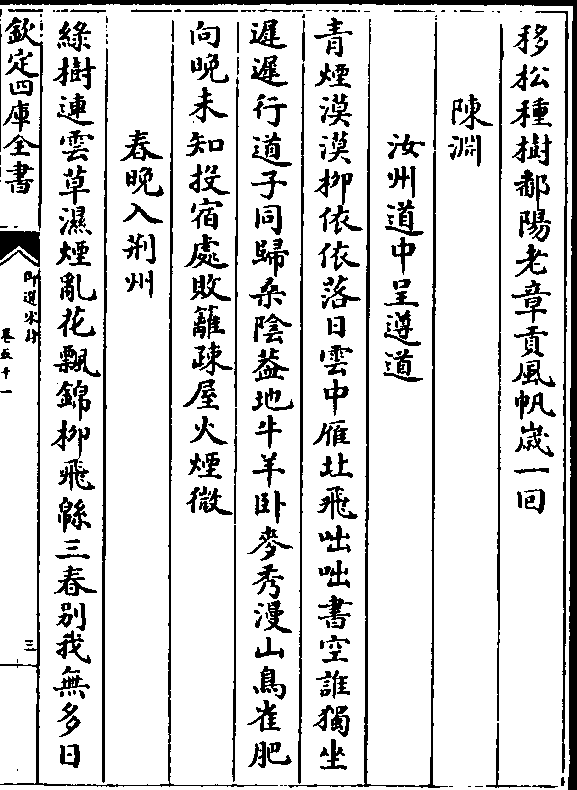 移松種樹鄱陽老章貢風帆嵗一回
陳淵
汝州道中呈遵道
青煙漠漠柳依依落日雲中雁北飛咄咄書空誰獨坐
遲遲行道子同歸桑陰葢地牛羊卧麥秀漫山鳥雀肥
向晩未知投宿處敗籬疎屋火煙微
春晩入荆州
綠樹連雲草濕煙亂花飄錦柳飛緜三春别我無多日
欽定四庫全書
御選宋詩
卷五十一
三